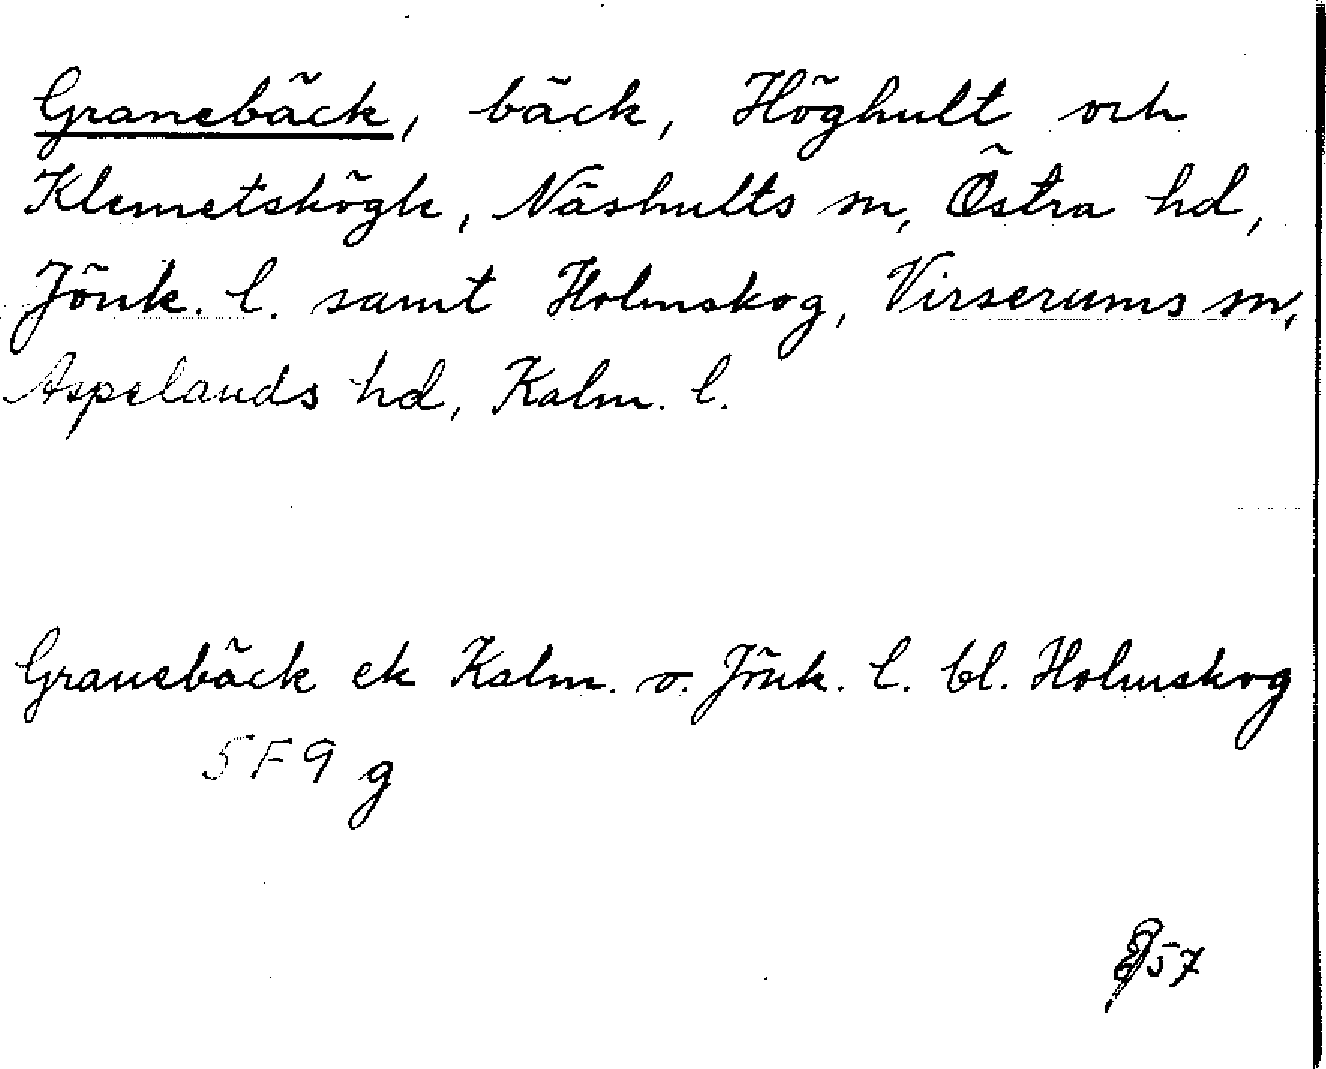 Granebäck, bäck, Höghult och
Klemetshögh, Näshults sn, Östra hd,
Jönk. l. samt Holmskog, Virserums sn,
Aspelands hd, Kalm. l.
Granebäck ek Kalm. o. Jönk. l. bl. Holmskog
5F9 g
57